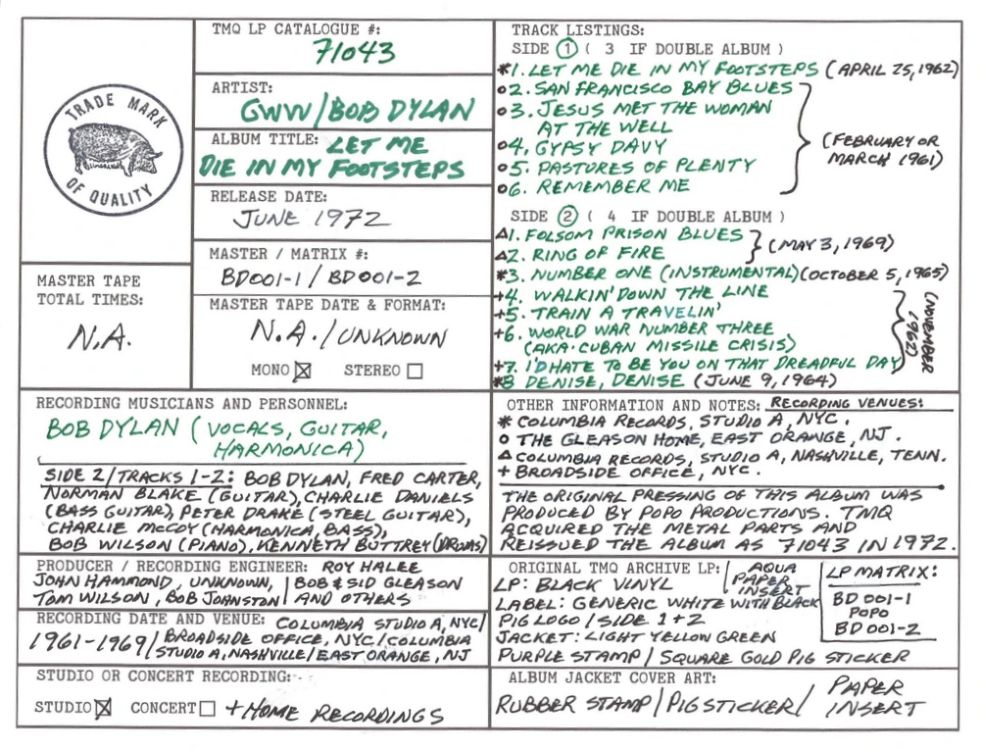 TRADE MARK
OF QUALITY
TMQ LP CATALOGUE #:
71043
ARTIST:
GWW/BOB DYLAN
ALBUM TITLE: LET ME
DIE IN MY FOOTSTEPS
RELEASE DATE:
JUNE 1972
MASTER / MATRIX #:
BD001-1 / BD001-2
MASTER TAPE
TOTAL TIMES:
N.A.
MASTER TAPE DATE & FORMAT:
N.A./UNKNOWN
MONO ☒ STEREO ☐
TRACK LISTINGS:
SIDE ① ( 3 IF DOUBLE ALBUM )
*1. LET ME DIE IN MY FOOTSTEPS (APRIL 25, 1962)
o2. SAN FRANCISCO BAY BLUES
o3. JESUS MET THE WOMAN
AT THE WELL
o4. GYPSY DAVY
o5. PASTURES OF PLENTY
o6. REMEMBER ME
(FEBRUARY OR
MARCH 1961)
SIDE ② ( 4 IF DOUBLE ALBUM )
△1. FOLSOM PRISON BLUES
△2. RING OF FIRE
(MAY 3, 1969)
*3. NUMBER ONE (INSTRUMENTAL) (OCTOBER 5, 1965)
+4. WALKIN' DOWN THE LINE
+5. TRAIN A TRAVELIN'
+6. WORLD WAR NUMBER THREE
(AKA·CUBAN MISSILE CRISIS)
+7. I'D HATE TO BE YOU ON THAT DREADFUL DAY
(NOVEMBER
1962)
*8 DENISE, DENISE (JUNE 9, 1964)
RECORDING MUSICIANS AND PERSONNEL:
BOB DYLAN (VOCALS, GUITAR,
HARMONICA)
SIDE 2/TRACKS 1-2: BOB DYLAN, FRED CARTER,
NORMAN BLAKE (GUITAR), CHARLIE DANIELS
(BASS GUITAR), PETER DRAKE (STEEL GUITAR),
CHARLIE McCOY (HARMONICA, BASS),
BOB WILSON (PIANO), KENNETH BUTTREY (DRUMS)
OTHER INFORMATION AND NOTES: RECORDING VENUES:
* COLUMBIA RECORDS, STUDIO A, NYC.
o THE GLEASON HOME, EAST ORANGE, NJ.
△ COLUMBIA RECORDS, STUDIO A, NASHVILLE, TENN.
+ BROADSIDE OFFICE, NYC.
THE ORIGINAL PRESSING OF THIS ALBUM WAS
PRODUCED BY POPO PRODUCTIONS. TMQ
ACQUIRED THE METAL PARTS AND
REISSUED THE ALBUM AS 71043 IN 1972.
PRODUCER / RECORDING ENGINEER: ROY HALEE
JOHN HAMMOND, UNKNOWN, BOB & SID GLEASON
TOM WILSON, BOB JOHNSTON AND OTHERS
RECORDING DATE AND VENUE: COLUMBIA STUDIO A, NYC/
1961-1969/ BROADSIDE OFFICE, NYC/COLUMBIA
STUDIO A, NASHVILLE/EAST ORANGE, NJ
STUDIO OR CONCERT RECORDING:
STUDIO ☒ CONCERT ☐ + HOME RECORDINGS
ORIGINAL TMQ ARCHIVE LP: AQUA
PAPER
INSERT
LP: BLACK VINYL
LABEL: GENERIC WHITE WITH BLACK
PIG LOGO / SIDE 1+2
JACKET: LIGHT YELLOW GREEN
PURPLE STAMP / SQUARE GOLD PIG STICKER
LP MATRIX:
BD 001-1
POPO
BD 001-2
ALBUM JACKET COVER ART:
RUBBER STAMP/PIG STICKER/ PAPER
INSERT